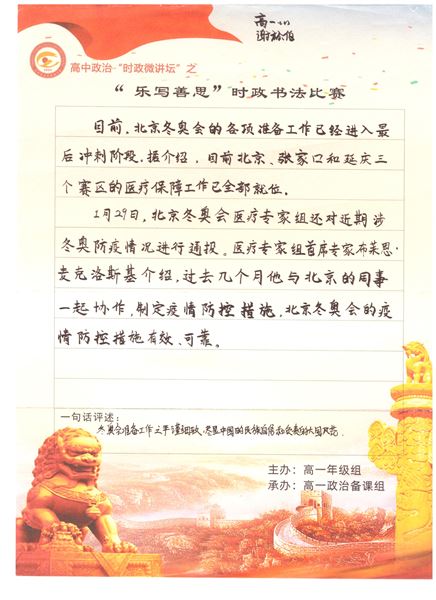 高一
高中政治-“时政微讲坛”之
“乐写善思”时政书法比赛
目前,北京冬奥会的各项准备工作已经进入最
后冲刺阶段。据介绍,目前北京、张家口和延庆三
个赛区的医疗保障工作已全部就位。
1月29日,北京冬奥会医疗专家组还对近期涉
冬奥防疫情况进行通报。医疗专家组首席专家布莱恩·
麦克洛斯基介绍,过去几个月他与北京的同事
一起协作,制定疫情防控措施,北京冬奥会的疫
情防控措施有效、可靠。
一句话评述:
冬奥会准备工作
主办:高一年级组
承办:高一政治备课组